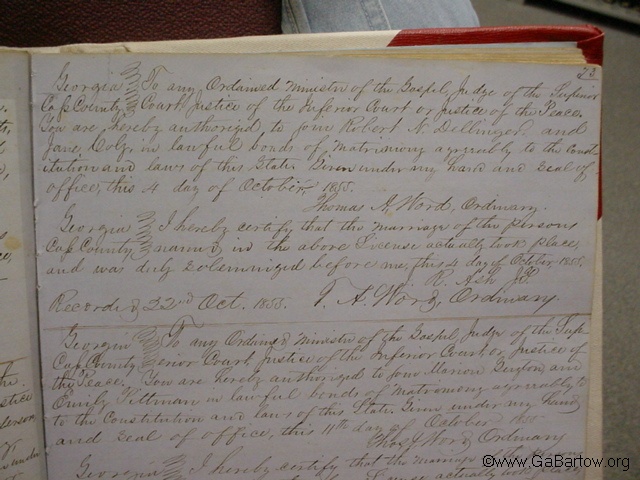 73
Georgia To any Ordained Minister of the Gospel, Judge of the Superior
Cass County Court Justice of the Inferior Court or Justice of the Peace,
You are, hereby authorized, to join Robert N Dellinger and
Jane in lawful bonds of Matrimony agreeably to the Const
itution and laws of this State. Given under my hand and Seal of
office, this 4 day of October, 1855.
Thomas A. Word, Ordinary.
Georgia I hereby certify that the marriage of the persons
Cass County, named in the above License actually took place,
and was duly Solemnized before me, this 4 day of October 1855.
R. Ash JP.
Recorded 22nd Oct. 1855. T. A. Word, Ordinary
Georgia To any Ordained Minister of the Gospel Judge of the Sup
Cass County erior Court, Justice of the Inferior Court or Justice of
the Peace. You are hereby authorized to join Marion and
Emily Pittman in lawful bonds of Matrimony agreeably
to the Constitution and laws of this State. Given under my Hand
and Seal of office, this 11th day of October 1855
Thos A Word Ordinary
Georgia I hereby certify that the marriage of the
actually took place
©www.GaBartow.org